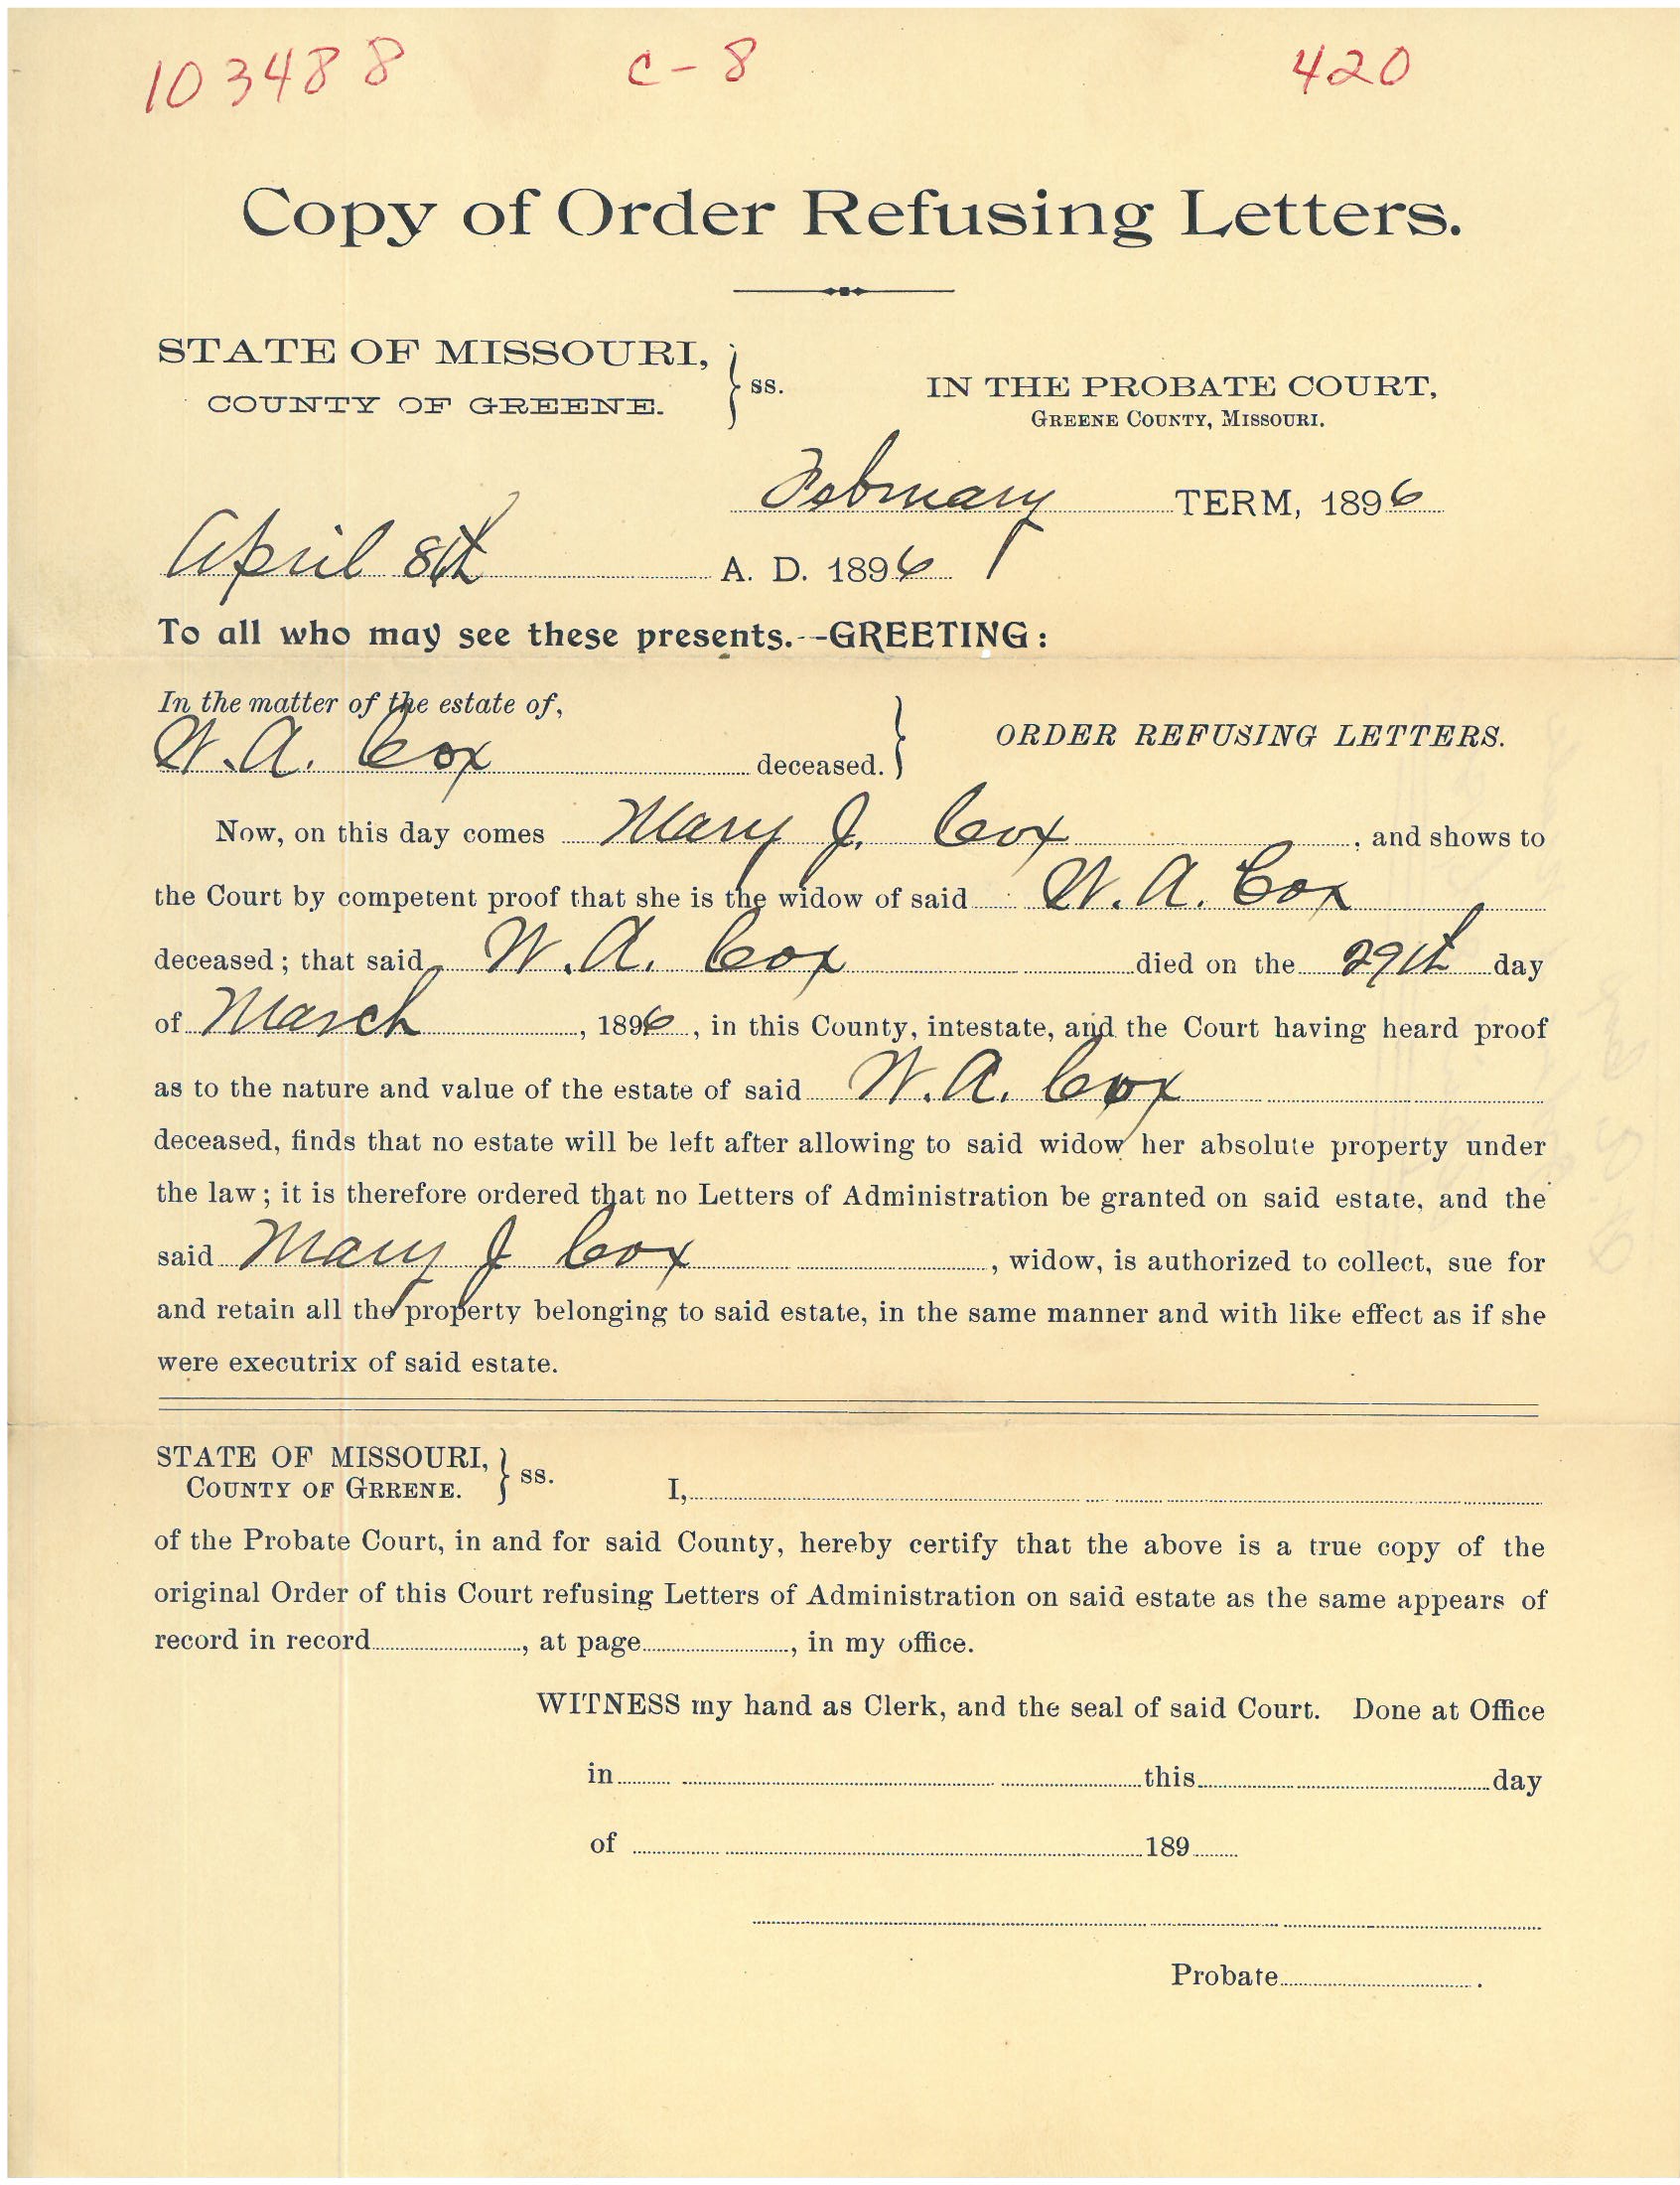 103488 C-8 420
Copy of Order Refusing Letters.
STATE OF MISSOURI,
COUNTY OF GREENE. } ss.
IN THE PROBATE COURT,
GREENE COUNTY, MISSOURI.
February TERM, 1896
April 8th A. D. 1896
To all who may see these presents.--GREETING:
In the matter of the estate of,
W. A. Cox deceased. }
ORDER REFUSING LETTERS.
Now, on this day comes Mary J. Cox, and shows to
the Court by competent proof that she is the widow of said W. A. Cox
deceased; that said W. A. Cox died on the 29th day
of March, 1896, in this County, intestate, and the Court having heard proof
as to the nature and value of the estate of said W. A. Cox
deceased, finds that no estate will be left after allowing to said widow her absolute property under
the law; it is therefore ordered that no Letters of Administration be granted on said estate, and the
said Mary J Cox, widow, is authorized to collect, sue for
and retain all the property belonging to said estate, in the same manner and with like effect as if she
were executrix of said estate.
STATE OF MISSOURI,
COUNTY OF GRRENE. } ss.
I,
of the Probate Court, in and for said County, hereby certify that the above is a true copy of the
original Order of this Court refusing Letters of Administration on said estate as the same appears of
record in record, at page, in my office.
WITNESS my hand as Clerk, and the seal of said Court. Done at Office
in this day
of 189
Probate.